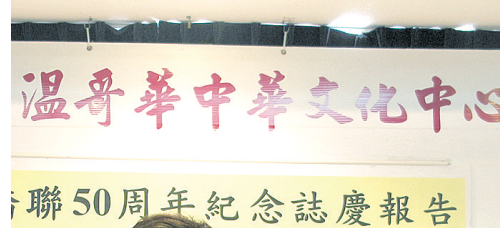 温哥華中華文化中心
聯50周年紀念誌慶報告